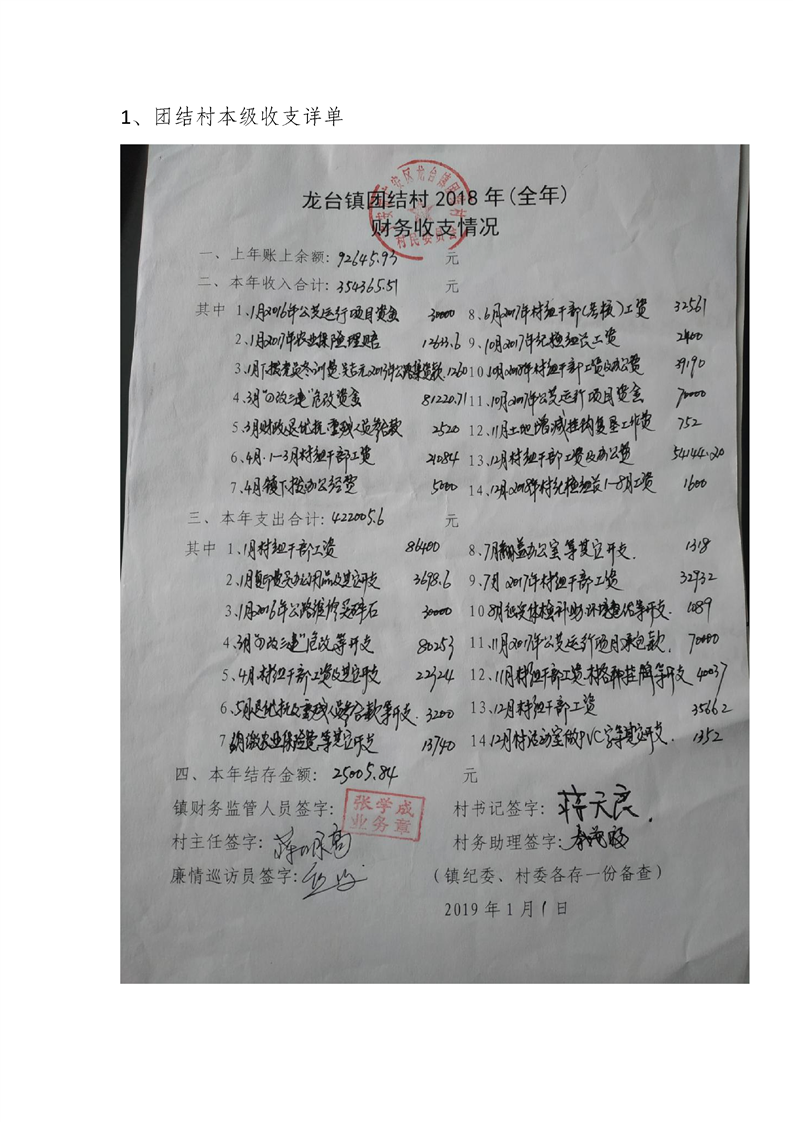 1、团结村本级收支详单
龙台镇团结村2018年(全年)
财务收支情况
村民委员会
一、上年账上余额: 92645.93 元
二、本年收入合计: 354365.51 元
其中 1、1月2016年公共运行项目资金 30000 8、6月2017年村组干部(考核)工资 32561
2、1月2017年农业保险理赔 12633.6 9、10月2017年纪检组长工资 2400
3、1月下拨党员冬训费、 1260 10、10月2018年村组干部工资及办公费 39190
4、3月"四改三建"危改资金 81220.71 11、10月2017年公共运行项目资金 70000
5、3月财政 2520 12、11月土地增减挂钩复垦工作费 752
6、4月.1-3月村组干部工资 21084 13、12月村组干部工资及办公费 54144.20
7、4月镇下拨办公经费 5000 14、12月2018年村纪检组长1-8月工资 1600
三、本年支出合计: 422005.6 元
其中 1、1月村组干部工资 86400 8、7月 办公室等其它开支. 1318
2、1月复印费买办公用品及其它开支 3698.6 9、7月2017年村组干部工资 32932
3、1月2016年公路维修买碎石 30000 10、8月 体检补助、环境 等开支. 1089
4、3月"四改三建"危改等开支 80253 11、11月2017年公共运行项目承包款. 70000
5、4月村组干部工资及其它开支 22324 12、11月村组干部工资、 等开支 40037
6、5月 等开支. 3200 13、12月村组干部工资 35662
7、6月缴农业保险费等其它开支 13740 14、12月村活动室做PVC字等其它开支. 1352
四、本年结存金额: 25005.84 元
镇财务监管人员签字: 张学成 业务章 村书记签字: 蒋天良
村主任签字: 村务助理签字:
廉情巡访员签字: (镇纪委、村委各存一份备查)
2019年1月1日